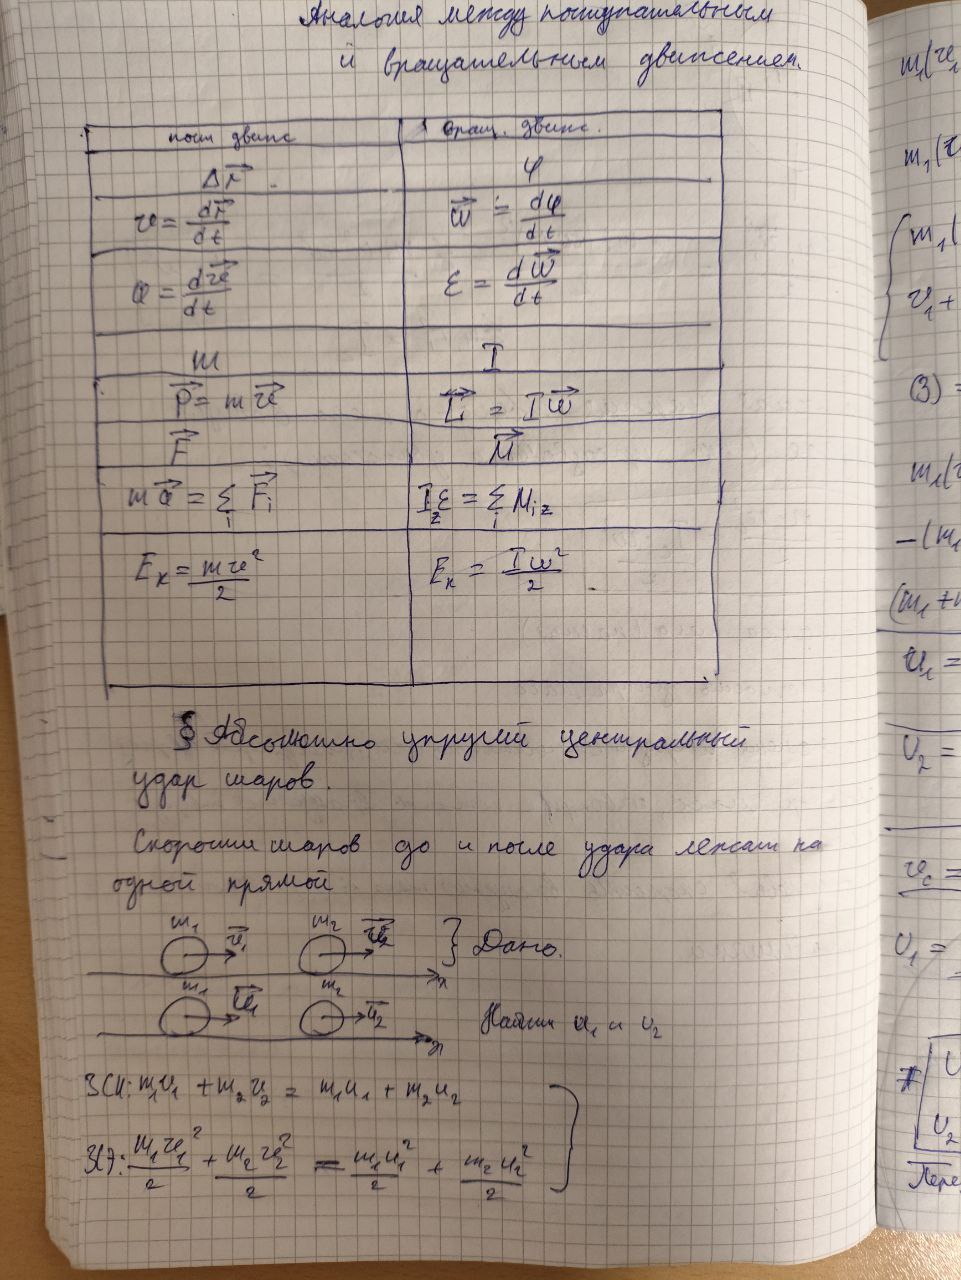 Аналогия между поступательным
и вращательным движением.
пост движ вращ. движ.
Δr⃗ φ
v = dr⃗/dt ω⃗ = dφ/dt
a = dv⃗/dt ε = dω⃗/dt
m I
P⃗ = mv⃗ L⃗ = Iω⃗
F⃗ M⃗
ma⃗ = Σᵢ F⃗ᵢ I_z ε = Σᵢ M_iz
Eₖ = mv²/2 Eₖ = Iω²/2
§ Абсолютно упругий центральный
удар шаров.
Скорости шаров до и после удара лежат на
одной прямой
m₁ v⃗₁ m₂ v⃗₂ } Дано.
x
m₁ u⃗₁ m₂ u⃗₂ Найти u₁ и u₂
x
ЗСИ: m₁v₁ + m₂v₂ = m₁u₁ + m₂u₂
ЗСЭ: m₁v₁²/2 + m₂v₂²/2 = m₁u₁²/2 + m₂u₂²/2
m₁(v₁
m₁(
m₁(
v₁ +
(3) =
m₁(
-(m₁
(m₁ +
u₁ =
u₂ =
v_c =
u₁ =
u₂